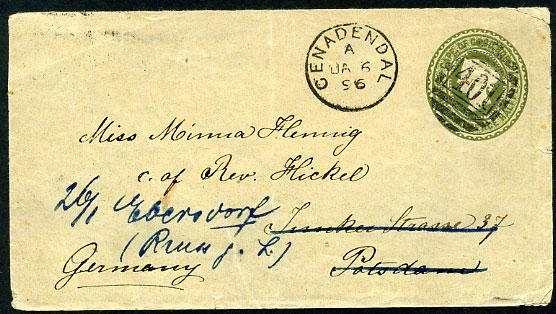 GENADENDAL
A
JA 6
96
OF GOOD
Miss Minna Flemig
c. of Rev. Hickel
26/1 Ebersdorf
Juncker Strasse 37
(Reuss j. L.)
Germany
Potsdam